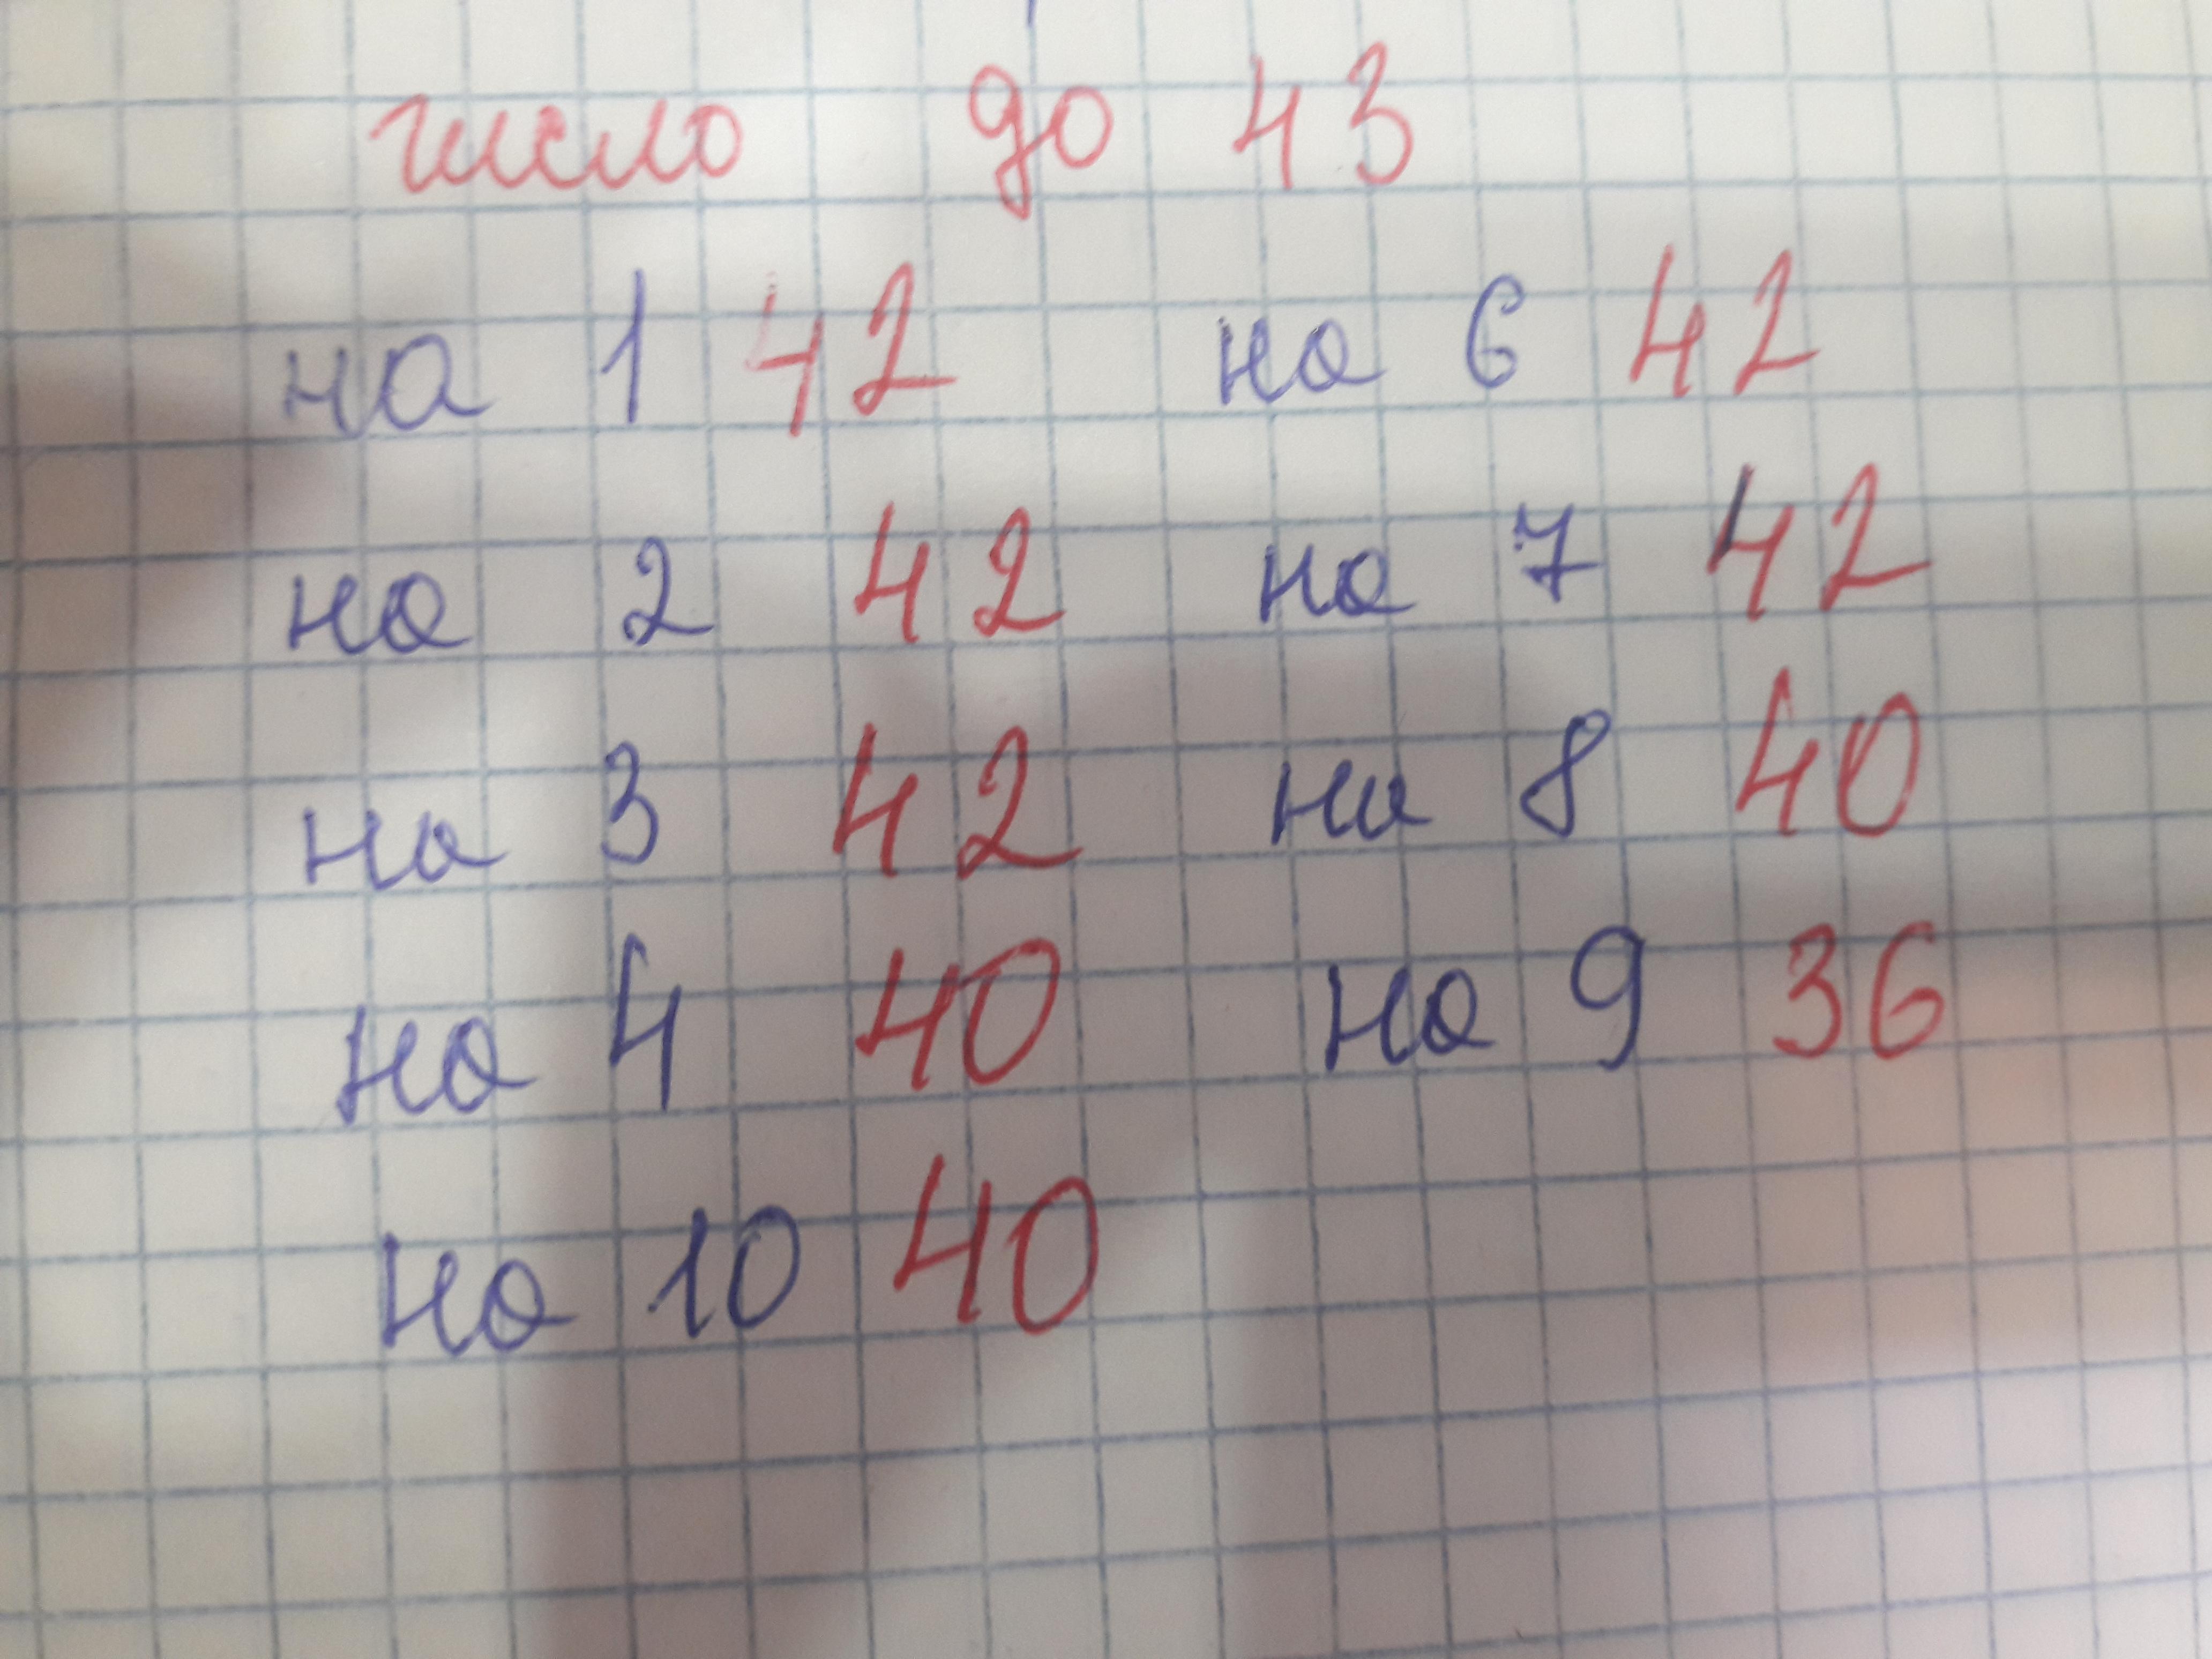 число до 43
на 1 42 на 6 42
на 2 42 на 7 42
на 3 42 на 8 40
на 4 40 на 9 36
на 10 40